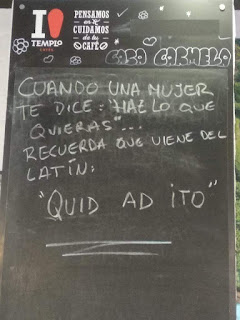 I
TEMPLO
CAFÉ
PENSAMOS
en TI
CUIDAMOS
de tu
CAFÉ
CASA CARMELO
CUANDO UNA MUJER
TE DICE: "HAZ LO QUE
QUIERAS"...
RECUERDA QUE VIENE DEL
LATÍN:
"QUID AD ITO"